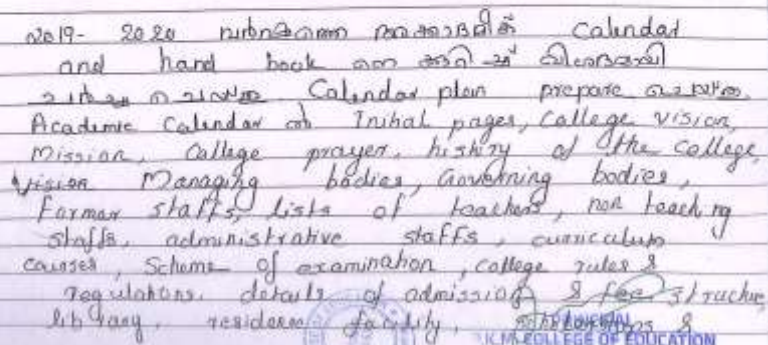 2019- 2020 വർഷത്തെ അക്കാദമിക് Calendar
and hand book നെ കുറിച്ച് വിശദമായി
ചർച്ച ചെയ്തു. Calendar plan prepare ചെയ്തു.
Academic Calendar ൽ Initial pages, College vision,
Mission, College prayer, history of the college,
vision Managing bodies, Governing bodies,
Former staffs, lists of teachers, non teaching
staffs, administrative staffs, curriculum
causes, Scheme of examination, college rules &
regulations, details of admission & fee structure,
library, residence facility, scholarships &
COLLEGE OF EDUCATION